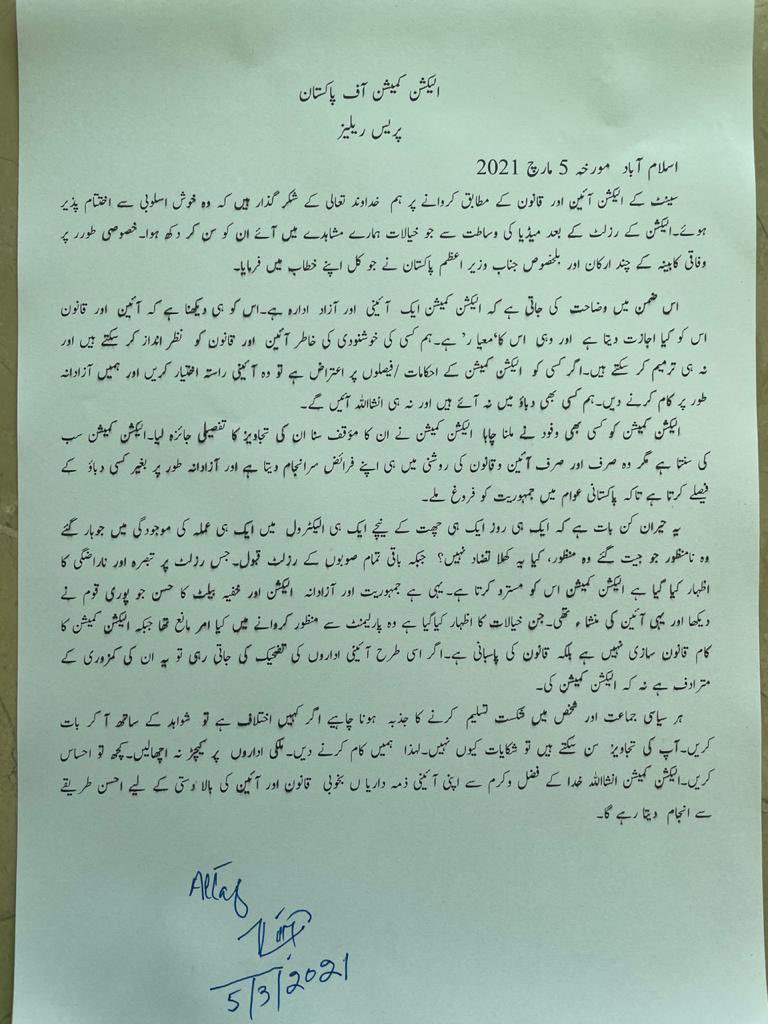 الیکشن کمیشن آف پاکستان
پریس ریلیز
اسلام آباد مورخہ 5 مارچ 2021
سینٹ کے الیکشن آئین اور قانون کے مطابق کروانے پر ہم خداوند تعالی کے شکر گذار ہیں کہ وہ خوش اسلوبی سے اختتام پذیر
ہوئے۔الیکشن کے رزلٹ کے بعد میڈیا کی وساطت سے جو خیالات ہمارے مشاہدے میں آئے ان کو سن کر دکھ ہوا۔خصوصی طورر پر
وفاقی کابینہ کے چند ارکان اور بلخصوص جناب وزیر اعظم پاکستان نے جو کل اپنے خطاب میں فرمایا۔
اس ضمن میں وضاحت کی جاتی ہے کہ الیکشن کمیشن ایک آئینی اور آزاد ادارہ ہے۔اس کو ہی دیکھنا ہے کہ آئین اور قانون
اس کو کیا اجازت دیتا ہے اور وہی اس کا'معیا ر' ہے۔ہم کسی کی خوشنودی کی خاطر آئین اور قانون کو نظر انداز کر سکتے ہیں اور
نہ ہی ترمیم کر سکتے ہیں۔اگر کسی کو الیکشن کمیشن کے احکامات /فیصلوں پر اعتراض ہے تو وہ آئینی راستہ اختیار کریں اور ہمیں آزادانہ
طور پر کام کرنے دیں۔ہم کسی بھی دباؤ میں نہ آئے ہیں اور نہ ہی انشااللہ آئیں گے۔
الیکشن کمیشن کو کسی بھی وفود نے ملنا چاہا الیکشن کمیشن نے ان کا مؤقف سنا ان کی تجاویز کا تفصیلی جائزہ لیا۔الیکشن کمیشن سب
کی سنتا ہے مگر وہ صرف اور صرف آئین وقانون کی روشنی میں ہی اپنے فرائض سرانجام دیتا ہے اور آزادانہ طور پر بغیر کسی دباؤ کے
فیصلے کرتا ہے تاکہ پاکستانی عوام میں جمہوریت کو فروغ ملے۔
یہ حیران کن بات ہے کہ ایک ہی روز ایک ہی چھت کے نیچے ایک ہی الیکٹرول میں ایک ہی عملہ کی موجودگی میں جوہار گئے
وہ نامنظور جو جیت گئے وہ منظور، کیا یہ کھلا تضاد نہیں؟ جبکہ باقی تمام صوبوں کے رزلٹ قبول۔جس رزلٹ پر تبصرہ اور ناراضگی کا
اظہار کیا گیا ہے الیکشن کمیشن اس کو مسترد کرتا ہے۔یہی ہے جمہوریت اور آزادانہ الیکشن اور خفیہ بیلٹ کا حسن جو پوری قوم نے
دیکھا اور یہی آئین کی منشاء تھی۔جن خیالات کا اظہار کیاگیا ہے وہ پارلیمنٹ سے منظور کروانے میں کیا امر مانع تھا جبکہ الیکشن کمیشن کا
کام قانون سازی نہیں ہے بلکہ قانون کی پاسبانی ہے۔اگر اسی طرح آئینی اداروں کی تضحیک کی جاتی رہی تو یہ ان کی کمزوری کے
مترادف ہے نہ کہ الیکشن کمیشن کی۔
ہر سیاسی جماعت اور شخص میں شکست تسلیم کرنے کا جذبہ ہونا چاہیے اگر کہیں اختلاف ہے تو شواہد کے ساتھ آ کر بات
کریں۔آپ کی تجاویز سن سکتے ہیں تو شکایات کیوں نہیں۔لہذا ہمیں کام کرنے دیں۔ملکی اداروں پر کیچڑ نہ اچھالیں۔کچھ تو احساس
کریں۔الیکشن کمیشن انشااللہ خدا کے فضل وکرم سے اپنی آئینی ذمہ داریا ں بخوبی قانون اور آئین کی بالا دستی کے لیے احسن طریقے
سے انجام دیتا رہے گا۔
Altaf
5/3/2021